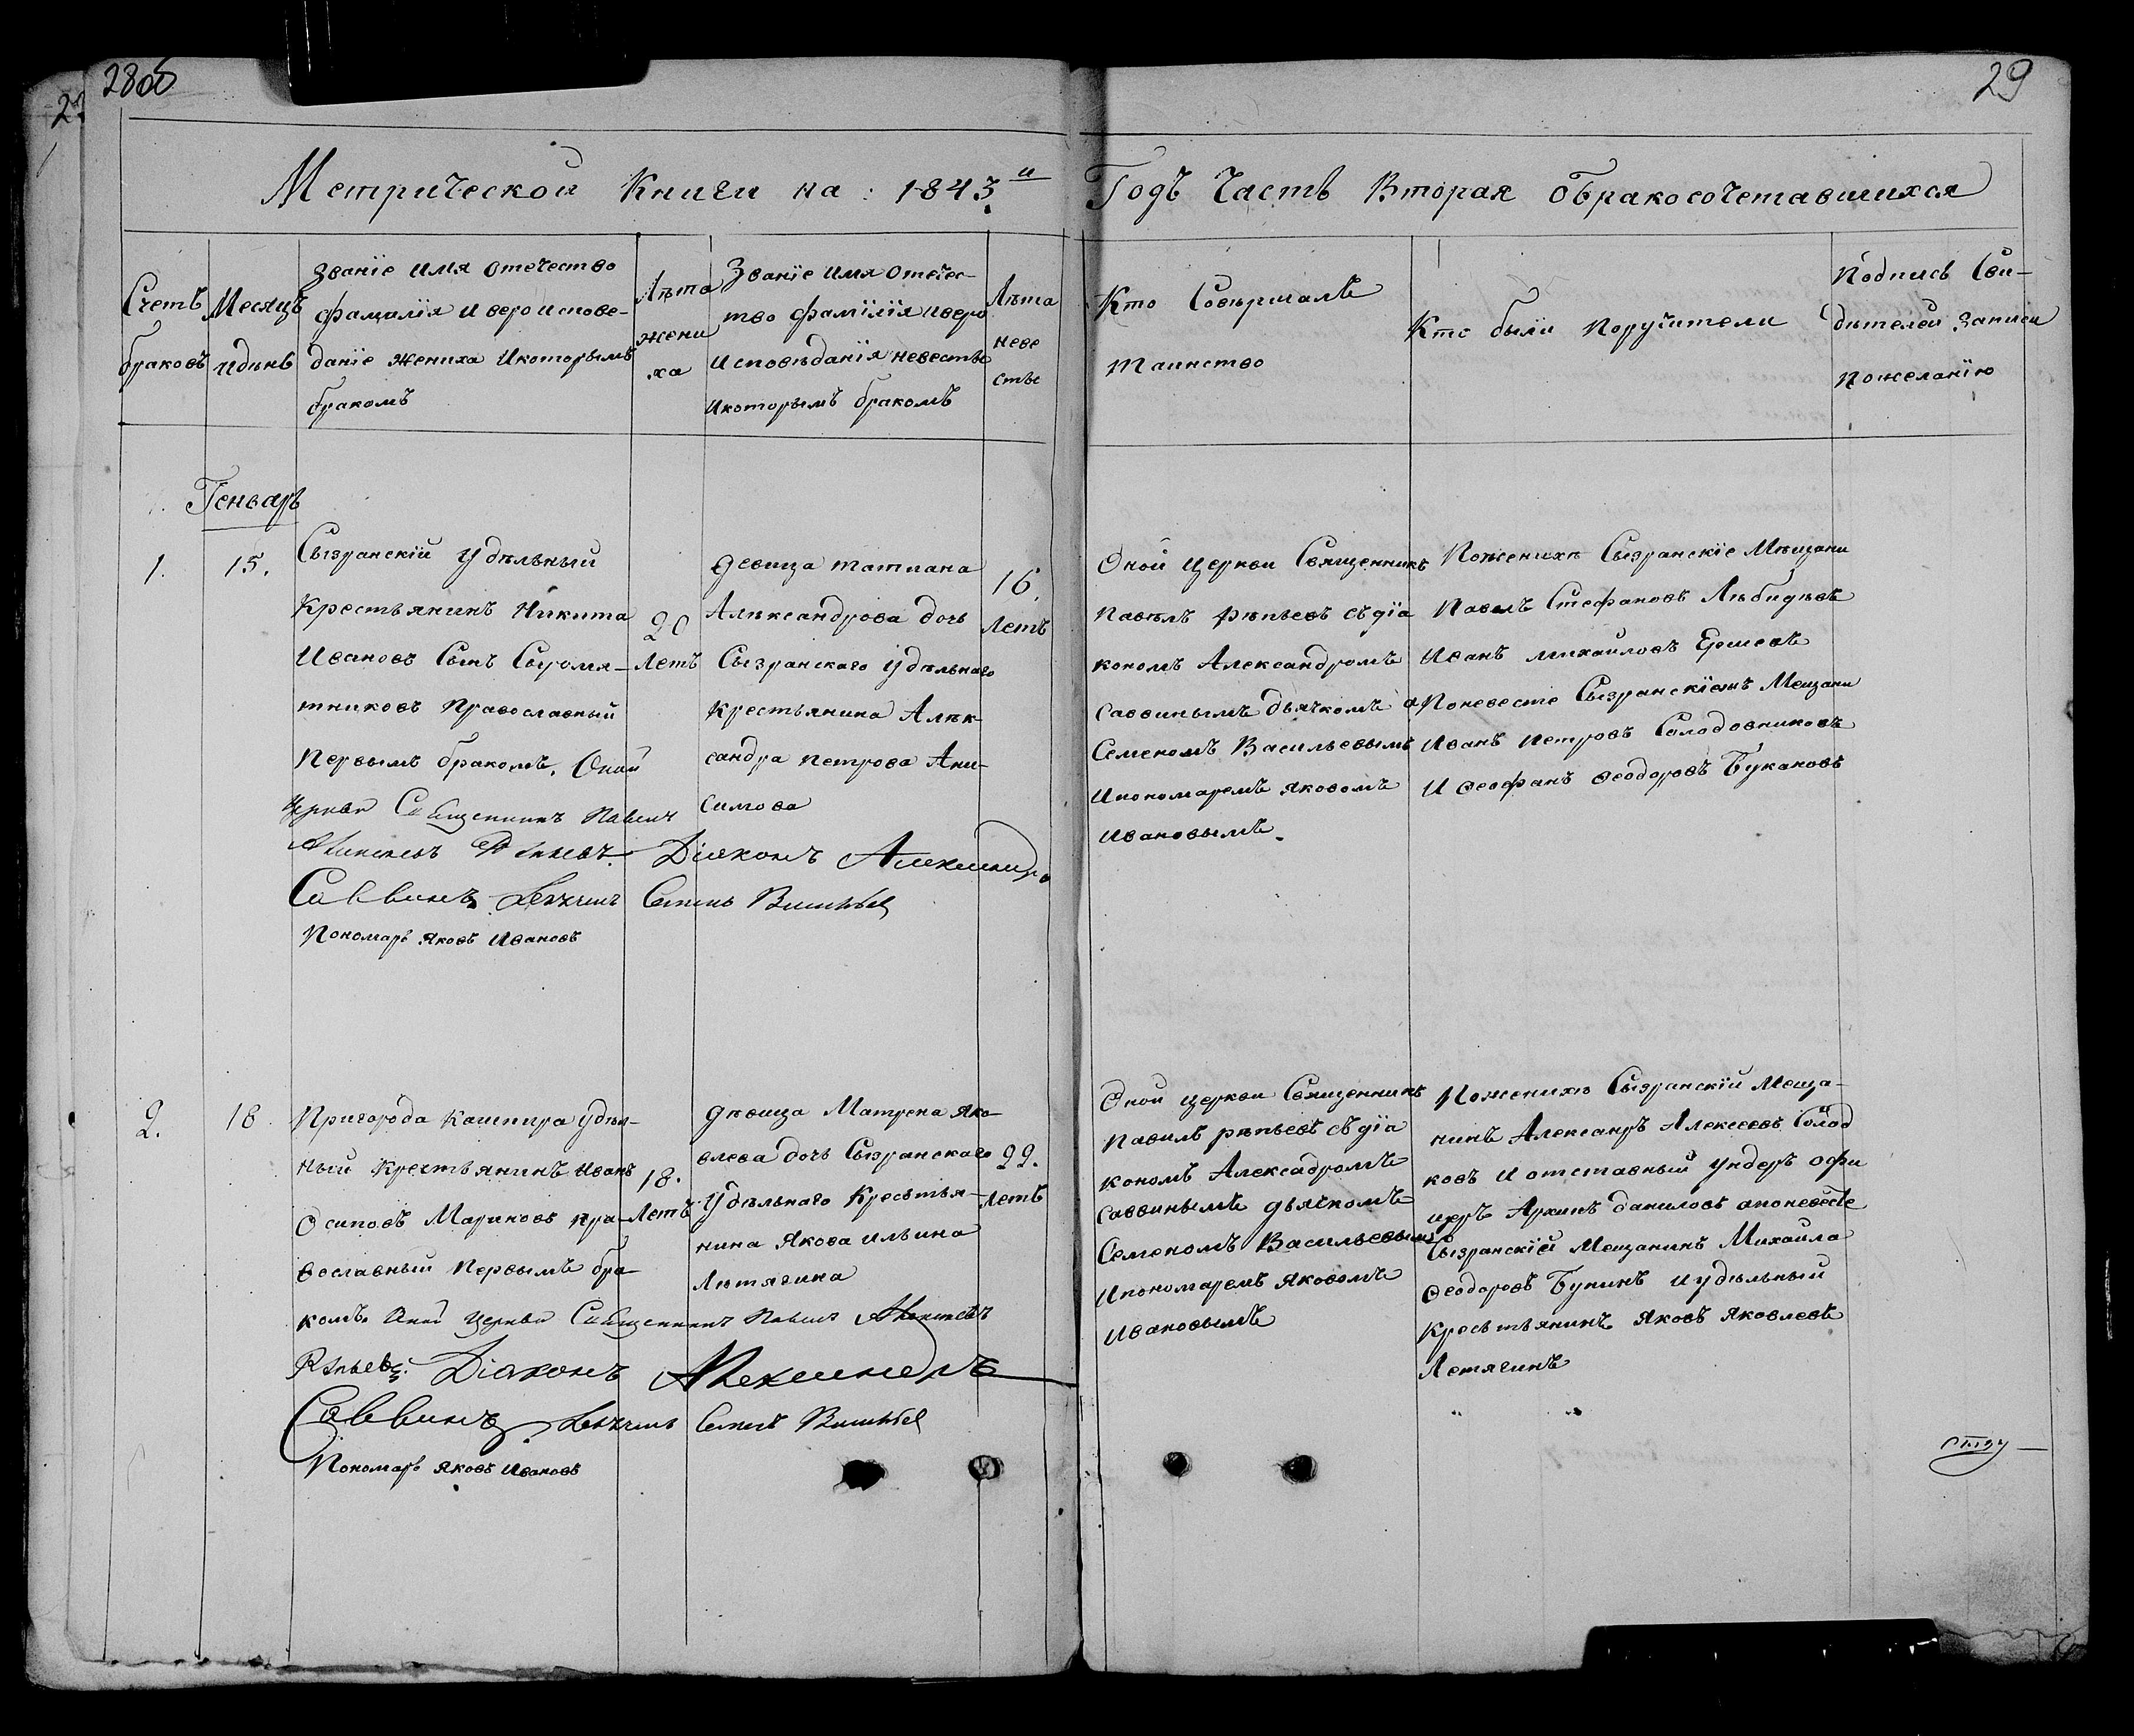 28об
29
Метрической Книги на : 1843й Годъ Часть Вторая обракосочетавшихся
Счетъ
браковъ
Месяцъ
идѣнь
Званїе имя отечество
фамилїя и вероиспове-
данїе жениха икоторымъ
бракомъ
Лѣта
жени
ха
Званїе имя отечес-
тво фамїилїя иверо
исповѣданїя невесты
икоторымъ бракомъ
Лѣта
неве
сты
Кто Совѣршалъ
таинство
Кто были поручители
Подпись Сви-
дѣтелей записи
пожеланїю
Геньварь
1.
15.
Сызранскїй удѣльный
Крестьянинъ Никита
Ивановъ Сынъ Сыромя-
тниковъ Православный
Первымъ бракомъ. Оной
Церкви Священникъ Павелъ
Алексѣевъ Рѣпьевъ. Дїаконъ Александръ
Саввинъ. Дьячекъ Семенъ Васильевъ
Пономарь Яковъ Ивановъ
20
Летъ
девица татиана
Алѣксандрова дочь
Сызранскаго Удѣльнаго
Крестьянина Алѣк-
сандра петрова Ани-
симова
16.
Летъ
Оной Церкви Священникъ
Павѣлъ рѣпьевъ съ дїа
кономъ Александромъ
Саввинымъ дьячкомъ
Семеномъ Васильевымъ
Ипономаремъ яковомъ
Ивановымъ.
Поженихѣ Сызранскїе Мѣщани
Павелъ Стефановъ Лѣбидѣвъ
Иванъ михаиловъ Ершевъ
а Поневесте Сызранскїемъ Мещани
Иванъ петровъ Солодовниковъ
И Ѳеофанъ Ѳеодоровъ Букановъ
2.
18.
Пригорода Кашпира удѣл-
ный Крестьянинъ Иванъ
Осиповъ Мариковъ пра-
вославный Первымъ бра-
комъ. Оной Церкви Священникъ Павелъ Алексѣевъ
Рѣпьевъ. Дїаконъ Александръ
Саввинъ. Дьячекъ Семенъ Васильевъ
Пономарь Яковъ Ивановъ
18.
Летъ
дѣвица Матрена Яко-
влева дочь Сызранскаго
Удѣльнаго Кресьтья-
нина Якова ильина
Лѣтягина
22.
Летъ
Оной церкви Священникъ
Павилъ рѣпьевъ съ дїа
кономъ Алексадромъ
Саввинымъ дьячкомъ
Семеномъ Васильевымъ
Ипономаремъ яковомъ
Ивановымъ
Поженихѣ Сызранскїй Меща-
нинъ Алексанръ Алексеевъ Солод
ковъ и отставный ундеръ офи
церъ Архипъ даниловъ апоневесте
Сызранскїй Мещанинъ Михаила
Ѳеодоровъ Бунинъ и удѣльный
Кресьтьянинъ Яковъ Яковлевъ
Летягинъ